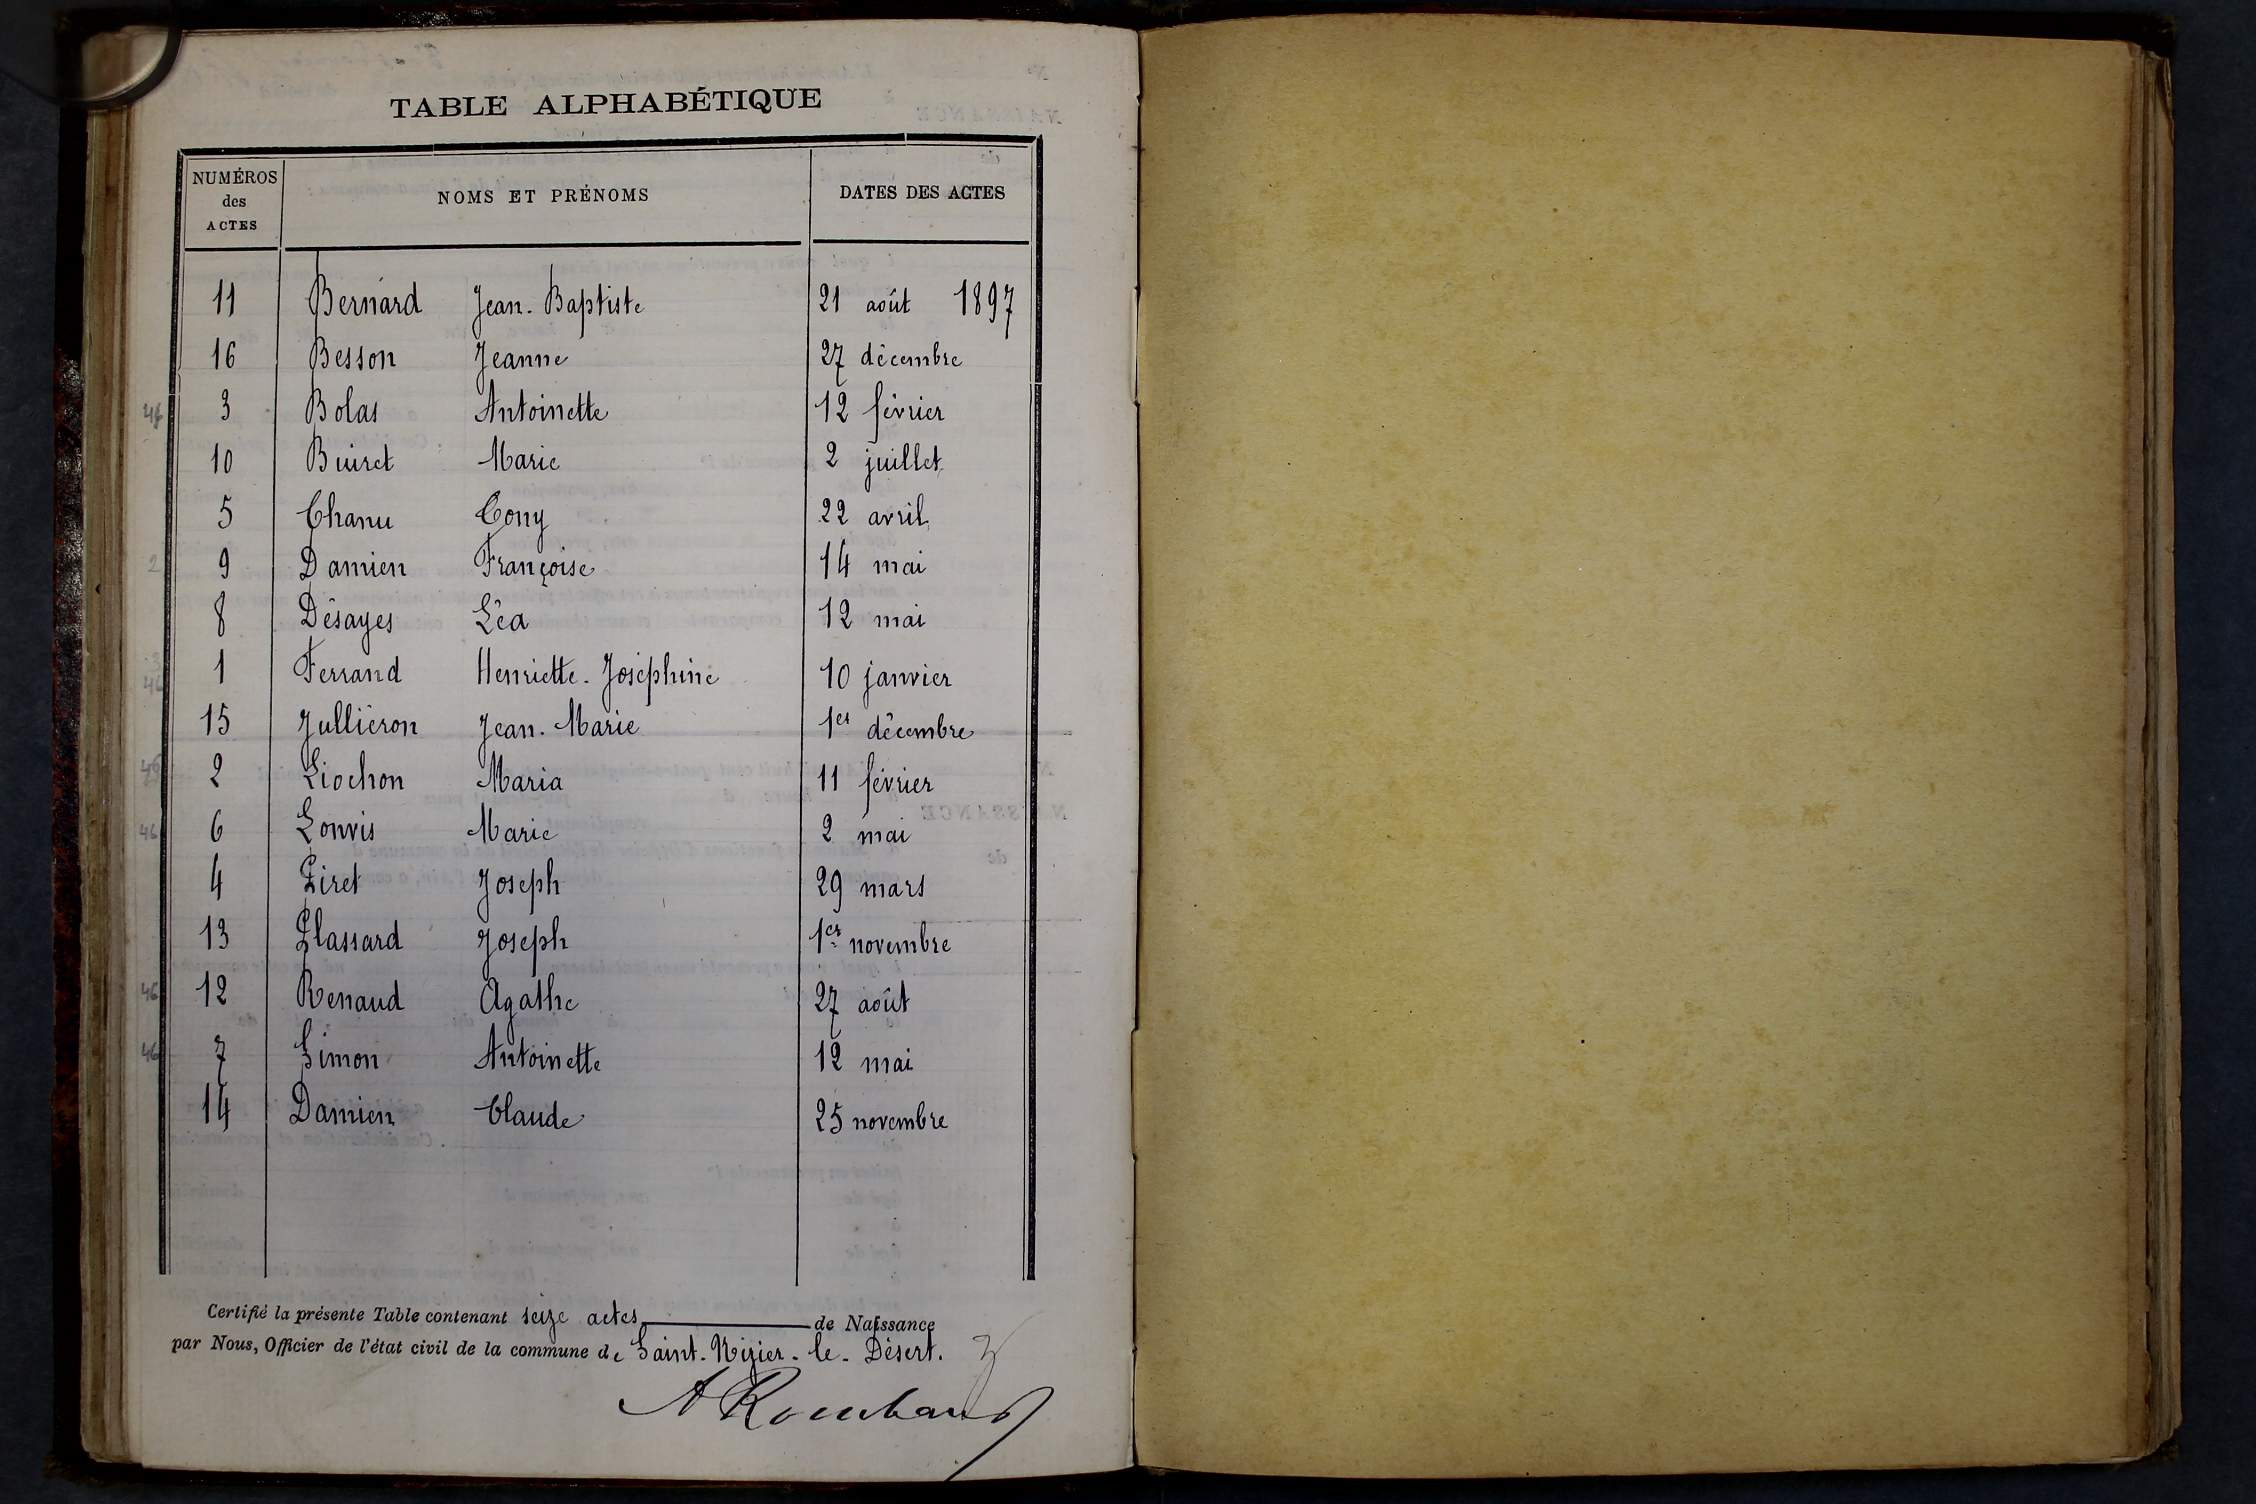 TABLE ALPHABÉTIQUE
NUMÉROS des ACTES NOMS ET PRÉNOMS DATES DES ACTES
11 Bernard Jean-Baptiste 21 août 1897
16 Besson Jeanne 27 décembre
46 3 Bolas Antoinette 12 février
10 Buiret Marie 2 juillet
5 Chanu Cony 22 avril
2 9 Damien Françoise 14 mai
8 Désayes Léa 12 mai
46 1 Ferrand Henriette-Joséphine 10 janvier
15 Jullièron Jean-Marie 1er décembre
46 2 Liochon Maria 11 février
46 6 Louvis Marie 2 mai
4 Piret Joseph 29 mars
13 Plassard Joseph 1er novembre
46 12 Renaud Agathe 27 août
46 7 Simon Antoinette 12 mai
14 Damien Claude 25 novembre
Certifié la présente Table contenant seize actes de Naissance
par Nous, Officier de l'état civil de la commune de Saint-Nizier-le-Désert.